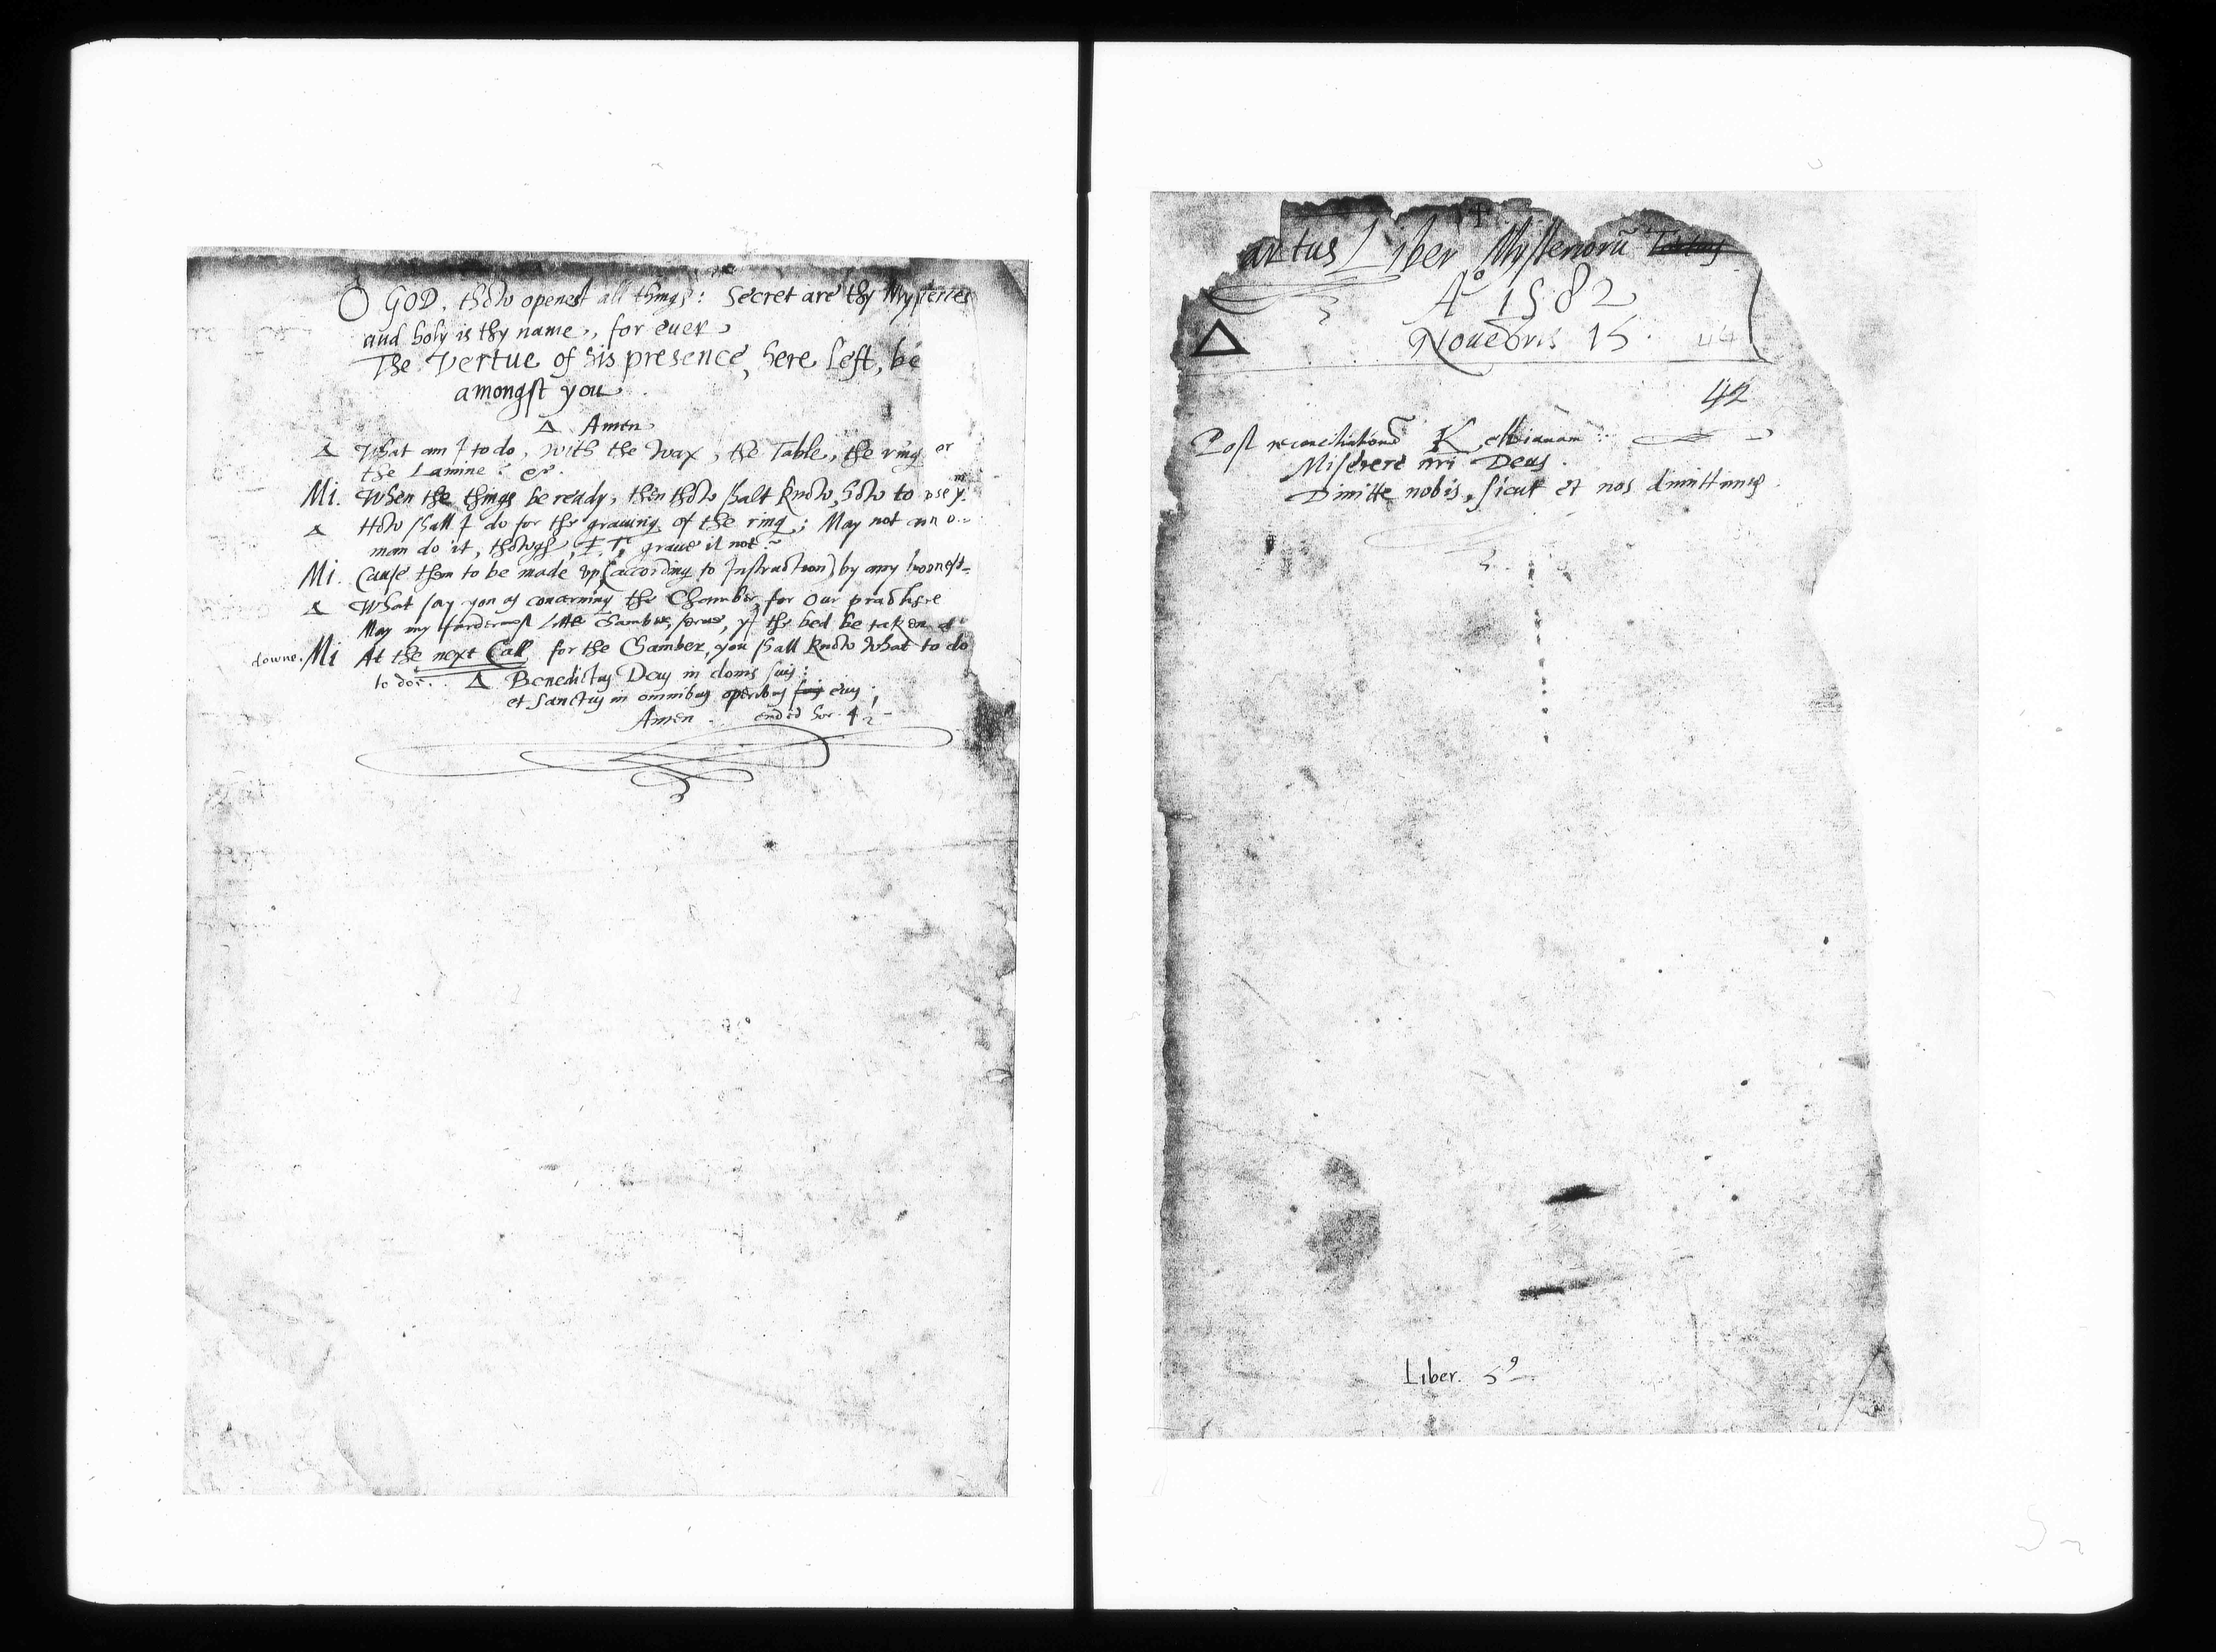 O GOD, thow openest all things: Secret are thy Mysteries
and holy is thy name, for euer
The Vertue of his presence, here left, be
amongst you.
Δ Amen
Δ What am I to do, with the wax, the Table, the ring, or
the Lamine? &c.
Mi. When the things be ready, then thow shalt know, how to vse yᵐ.
Δ How shall I do for the grauing of the ring; May not an o
man do it, thowgh, grave it not?
Mi. Cause them to be made vp, (according to Instruction) by any honnest-
Δ What say you as concerning the Chamber for our practise
May my fardermost little Chamber, serve, yf the bed be taken
downe. Mi At the next Call for the Chamber, you shall know what to do
to doe. Δ Benedictus Deus in donis suis:
et sanctus in omnibus operibus suis eius;
Amen. ended hor. 4
artus Liber Mysteriorū Tertius
Aº 1582
Δ Nouēbris 15. 44
42
Post reconciliationē Kellianam
Miserere nri Deus.
Dimitte nobis, sicut et nos dimittimus.
Liber. 5º